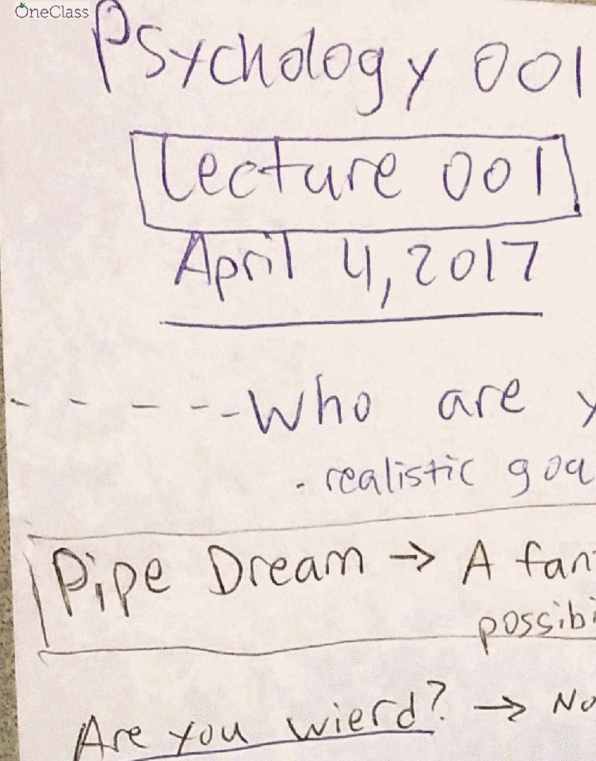 OneClass
Psychology 001
Lecture 001
April 4, 2017
Who are y
• realistic goa
Pipe Dream → A fan
possibi
Are you wierd? → No